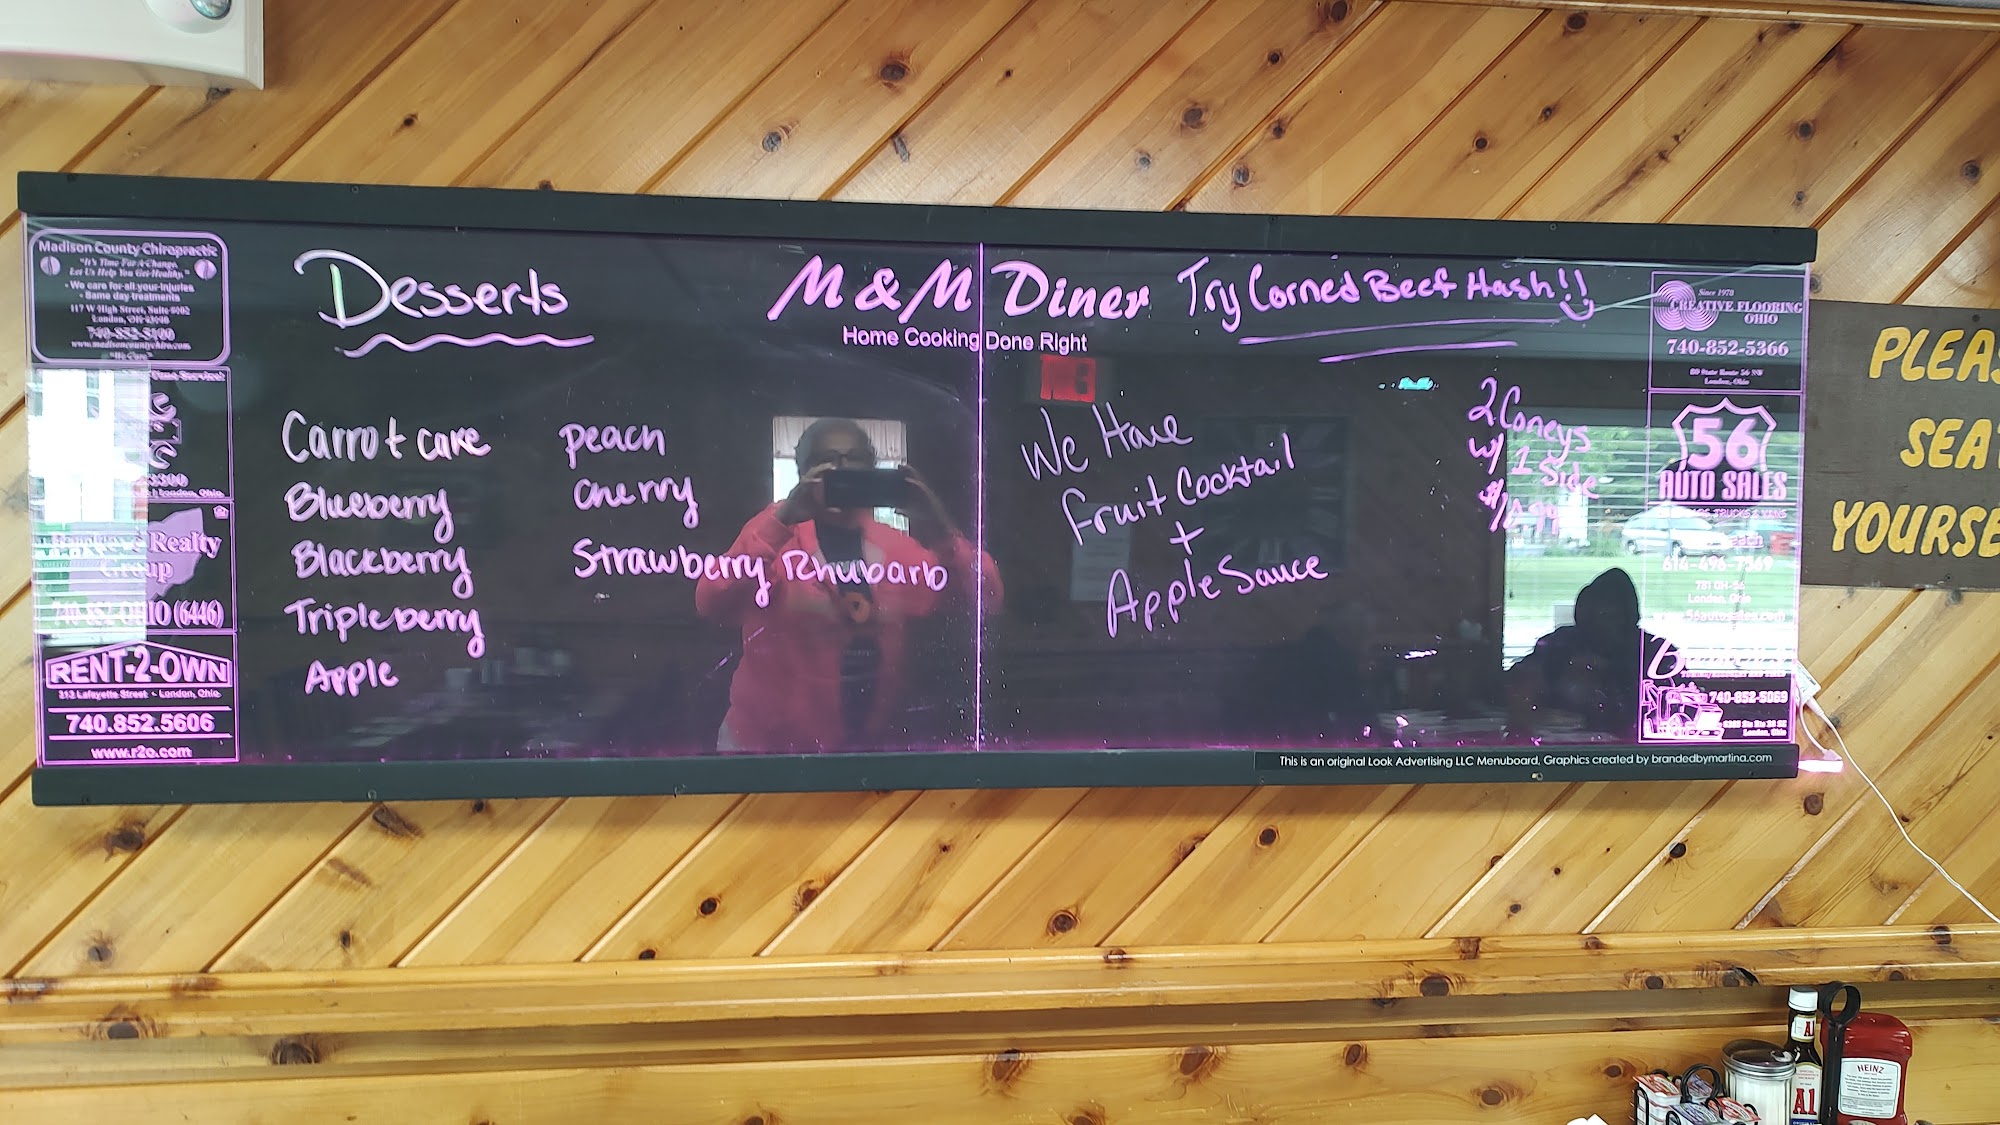 Madison County Chiropractic
"It's Time For A Change,
Let Us Help You Get Healthy."
- We care for all your injuries
- Same day treatments
117 W High Street, Suite
London, OH 43140
740-852-5100
www.madisoncountychiro.com
"We Care"
London, Ohio
Realty
Group
740-852-OHIO (6446)
RENT-2-OWN
213 Lafayette Street • London, Ohio
740.852.5606
www.r2o.com
Desserts
Carrot cake
Blueberry
Blackberry
Tripleberry
Apple
peach
cherry
Strawberry Rhubarb
M & M Diner
Home Cooking Done Right
Try Corned Beef Hash!!
We Have
Fruit Cocktail
+
Apple Sauce
2 Coneys
w/ 1 Side
Since 1978
CREATIVE FLOORING
OHIO
740-852-5366
89 State Route 56 NW
London, Ohio
56
AUTO SALES
TRUCKS & VANS
614-496-7569
781 OH-56
London, Ohio
740-852-5069
London, Ohio
This is an original Look Advertising LLC Menuboard, Graphics created by brandedbymartina.com
PLEAS
SEAT
YOURSE
A1
A1
HEINZ